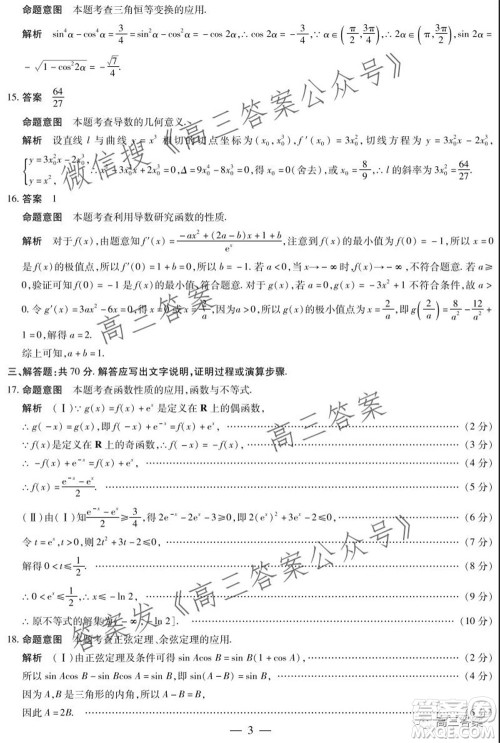 命题意图 本题考查三角恒等变换的应用.
解析 sin⁴α-cos⁴α=3/4=sin²α-cos²α=-cos 2α,∴cos 2α=-3/4,∵α∈(π/2,3π/4),∴2α∈(π,3π/2),∴sin 2α=
-√(1-cos²2α)=-√7/4.
15. 答案 64/27
命题意图 本题考查导数的几何意义.
解析 设直线 l 与曲线 y=x³ 相切的切点坐标为(x₀,x₀³),f′(x₀)=3x₀²,切线方程为 y=3x₀²x-2x₀³,
{y=3x₀²x-2x₀³,
y=x²,
∴x²-3x₀²x+2x₀³=0,Δ=9x₀⁴-8x₀³=0,得 x₀=0(舍去),或 x₀=8/9,∴l 的斜率为 3x₀²=64/27.
16. 答案 1
命题意图 本题考查利用导数研究函数的性质.
解析 对于 f(x),由题意知 f′(x)=(-ax²+(2a-b)x+1+b)/eˣ,注意到 f(x)的最小值为 f(0)=-1,所以 x=0
是 f(x)的极值点,所以 f′(0)=1+b=0,所以 b=-1. 若 a<0,当 x→-∞时,f(x)→-∞,不符合题意. 若 a≥
0,验证可知 f(0)=-1 是 f(x)的最小值,符合题意. 对于 g(x),若 a≤0,则 g(-1)=-a-3+1<0,不符合条件,故 a
>0. 令 g′(x)=3ax²-6x=0,得 x=0 或 x=2/a,因为 a>0,所以 g(x)的极小值点为 x=2/a,即 g(2/a)=8/a²-12/a²+
1=0,解得 a=2.
综上可知,a+b=1.
三、解答题:共 70 分. 解答应写出文字说明,证明过程或演算步骤.
17. 命题意图 本题考查函数性质的应用,函数与不等式.
解析 (Ⅰ)∵g(x)=f(x)+eˣ 是定义在 R 上的偶函数,
∴g(-x)=g(x),即 f(-x)+e⁻ˣ=f(x)+eˣ, (2 分)
∵f(x)是定义在 R 上的奇函数,∴f(-x)=-f(x), (3 分)
∴-f(x)+e⁻ˣ=f(x)+eˣ, (4 分)
∴f(x)=(e⁻ˣ-eˣ)/2. (5 分)
(Ⅱ)由(Ⅰ)知(e⁻ˣ-eˣ)/2≥3/4,得 2e⁻ˣ-2eˣ-3≥0,即 2(eˣ)²+3eˣ-2≤0, (6 分)
令 t=eˣ,t>0,则 2t²+3t-2≤0, (7 分)
解得 0<t≤1/2, (8 分)
∴0<eˣ≤1/2,∴x≤-ln 2, (9 分)
∴原不等式的解集为(-∞,-ln 2]. (10 分)
18. 命题意图 本题考查正弦定理、余弦定理的应用.
解析 (Ⅰ)由正弦定理及条件可得 sin Acos B=sin B(1+cos A), (2 分)
所以 sin Acos B-cos Asin B=sin B,即 sin(A-B)=sin B. (4 分)
因为 A,B 是三角形的内角,所以 A-B=B,
因此 A=2B. (6 分)
— 3 —
微信搜《高三答案公众号》
高三答案
高三答案
答案发《高三答案公众号》
高三答案